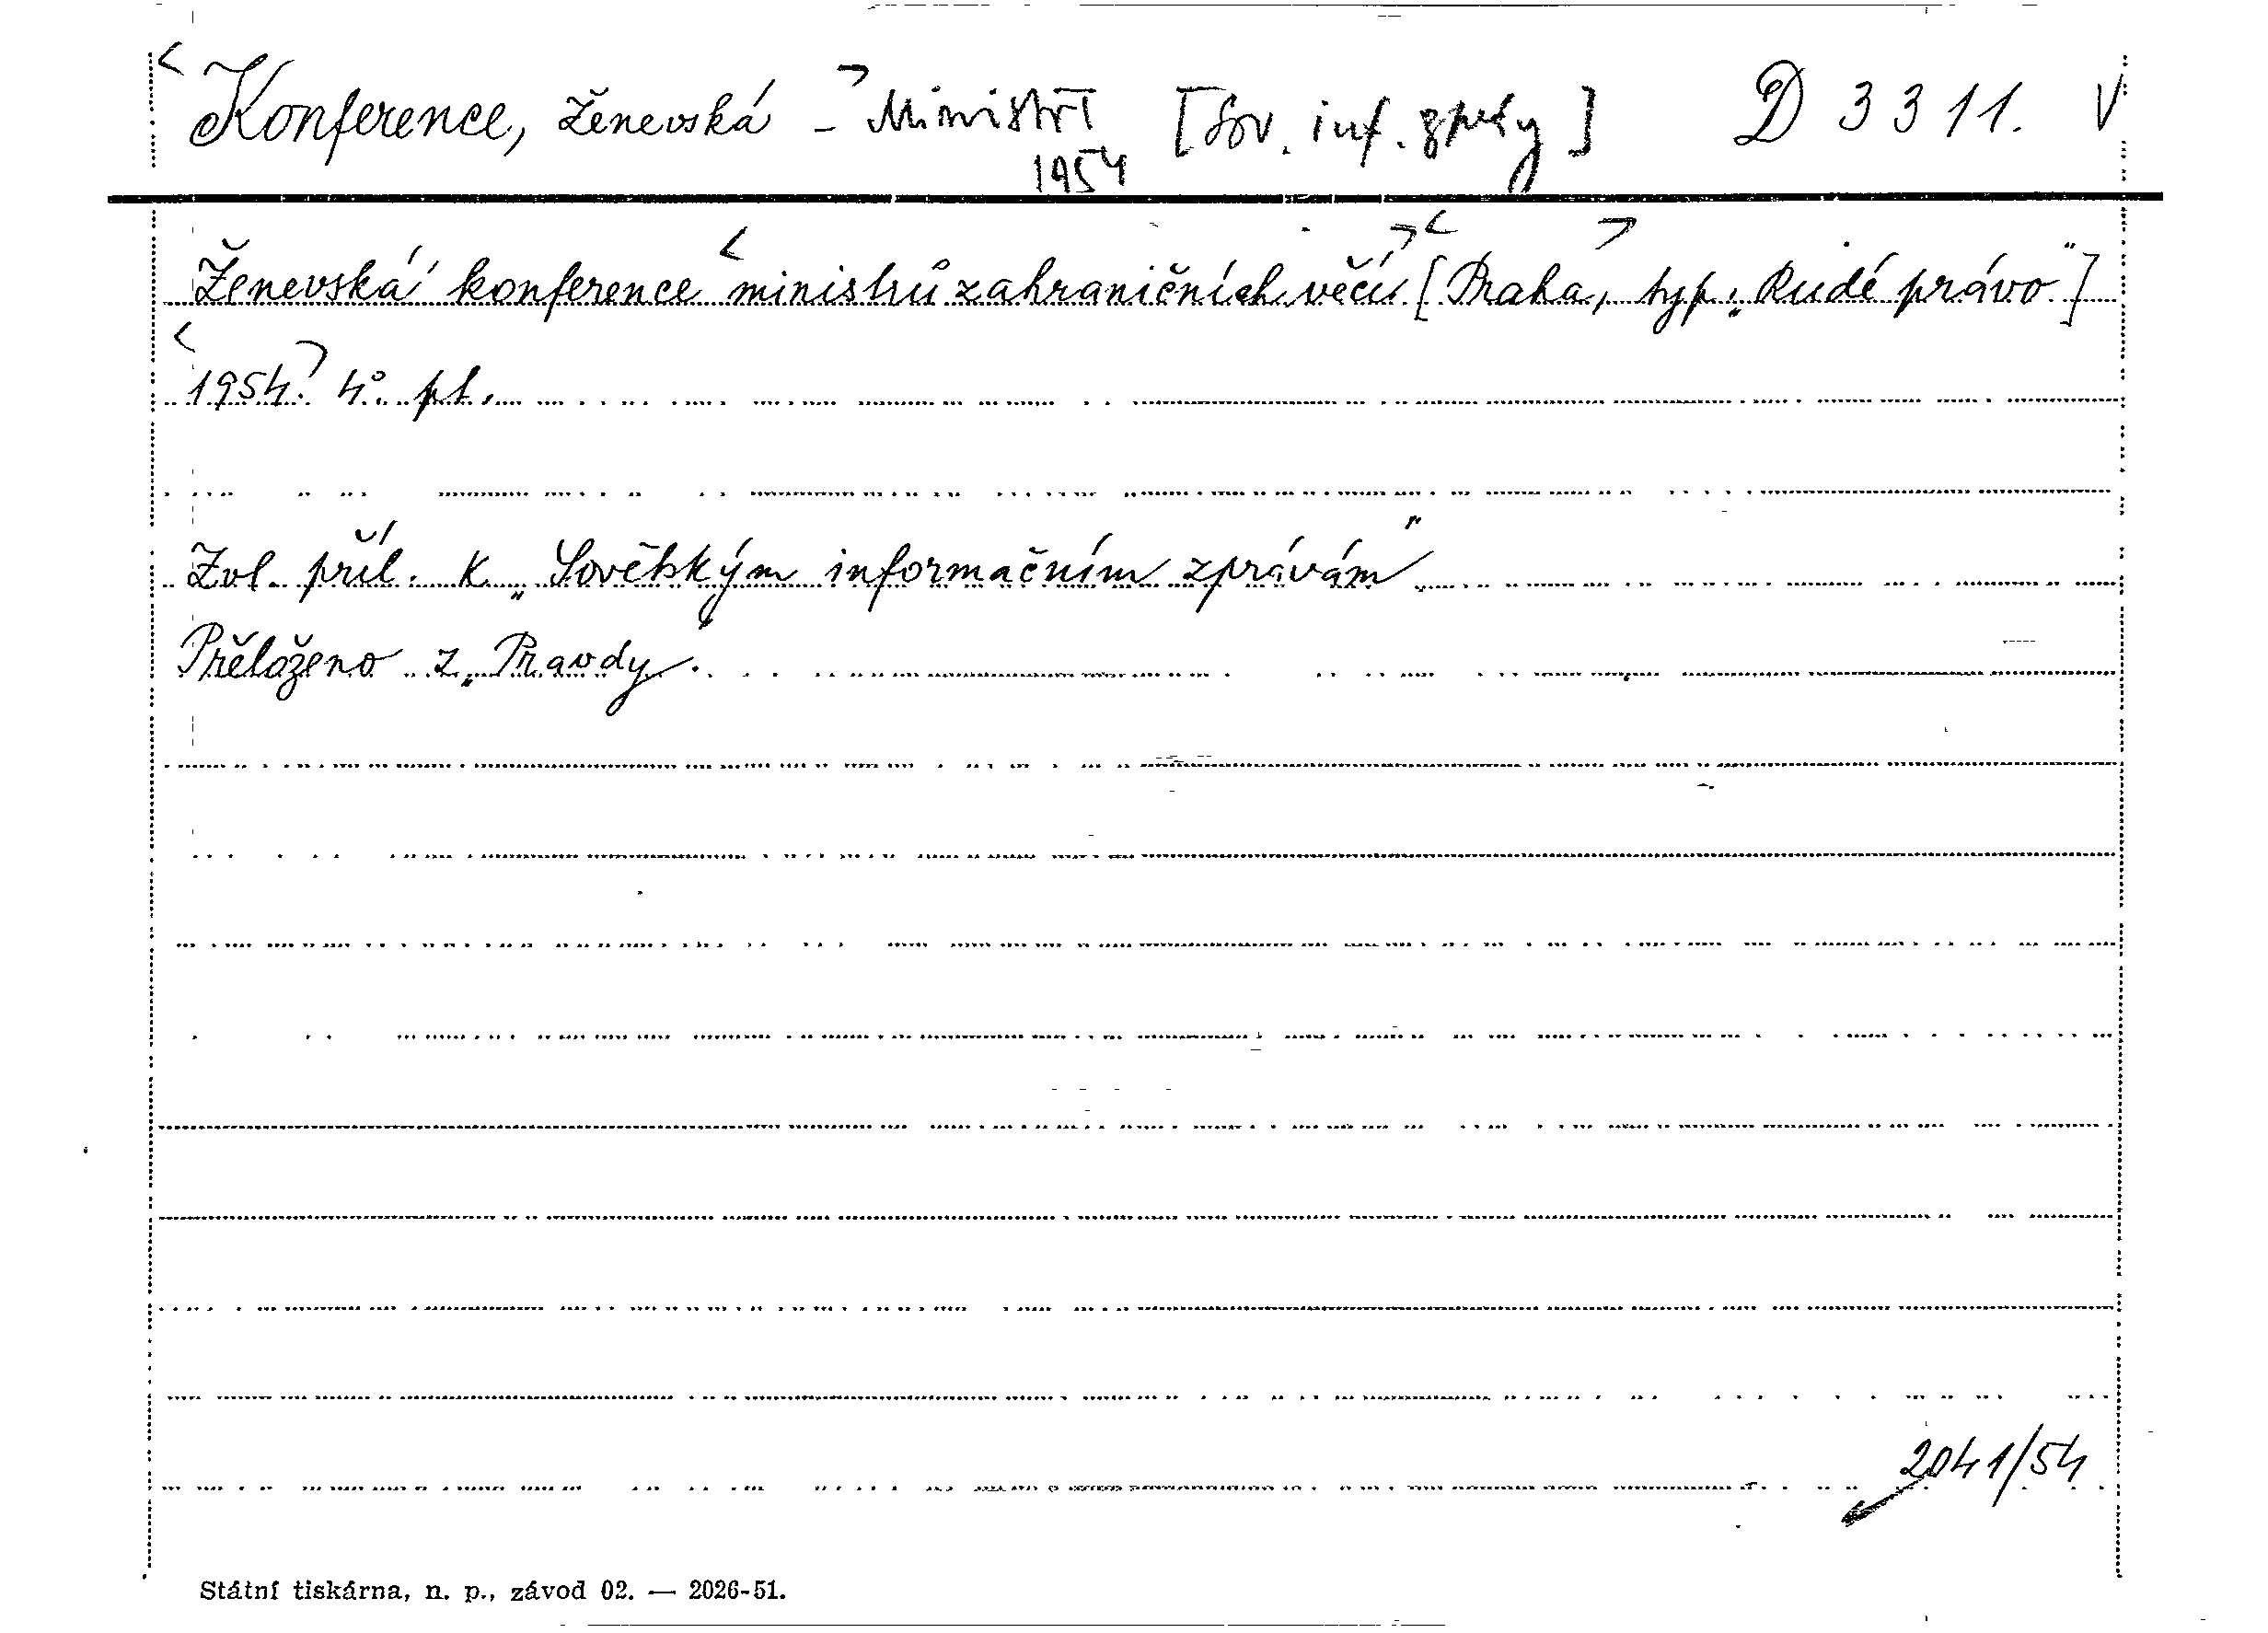 Konference, ženevská - Ministři [Sov. inf. zprávy] D 3311. V
1954
Ženevská konference ministrů zahraničních věcí. [Praha, typ. „Rudé právo"]
1954. 4°. pl.
Zvl. příl. k „Sovětským informačním zprávám".
Přeloženo z „Pravdy.
2041/54
Státní tiskárna, n. p., závod 02. — 2026-51.